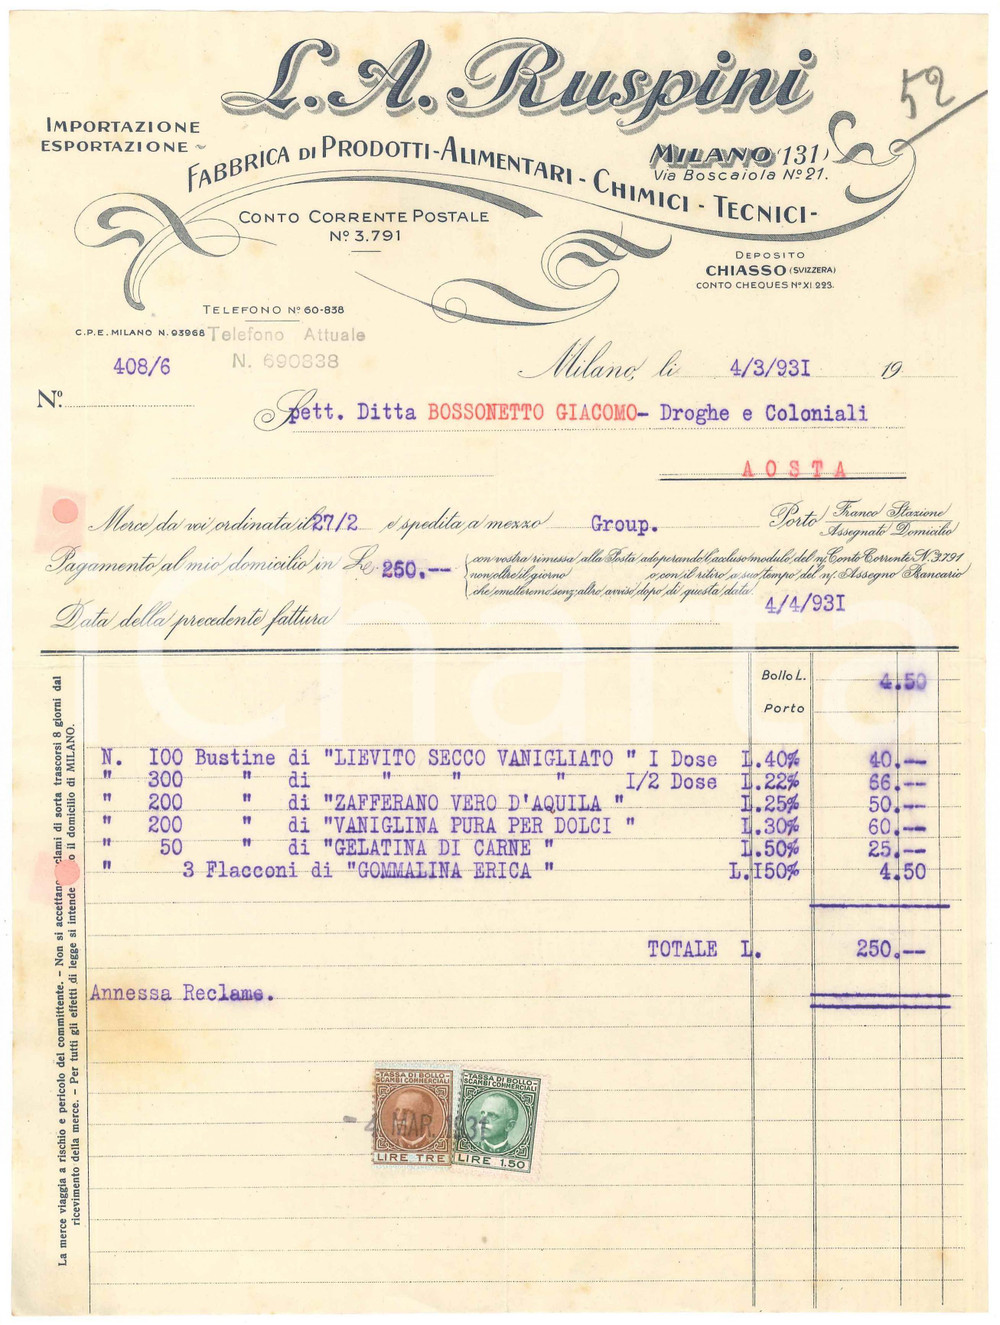 L. A. Ruspini
52
IMPORTAZIONE
ESPORTAZIONE
FABBRICA DI PRODOTTI-ALIMENTARI-CHIMICI-TECNICI-
MILANO (131)
Via Boscaiola Nº 21.
CONTO CORRENTE POSTALE
Nº 3.791
DEPOSITO
CHIASSO (SVIZZERA)
CONTO CHEQUES Nº XI.223.
TELEFONO Nº 60-838
C.P.E. MILANO N. 93968
Telefono Attuale
N. 690838
408/6
Nº.
Milano, li 4/3/93I 19
Spett. Ditta BOSSONETTO GIACOMO- Droghe e Coloniali
AOSTA
Merce da voi ordinata il 27/2 e spedita a mezzo Group. Porto Franco Stazione
Assegnato Domicilio
Pagamento al mio domicilio in L. 250.--
con vostra rimessa alla Posta adoperando l'accluso modulo del n/ Conto Corrente N. 3791
non oltre il giorno o con il ritiro a suo tempo del n/ Assegno Bancario
che emetteremo senz'altro avviso dopo di questa data.
4/4/93I
Data della precedente fattura
Bollo L. 4.50
Porto
N. I00 Bustine di "LIEVITO SECCO VANIGLIATO " I Dose L.40% 40.--
" 300 " di " " " I/2 Dose L.22% 66.--
" 200 " di "ZAFFERANO VERO D'AQUILA " L.25% 50.--
" 200 " di "VANIGLINA PURA PER DOLCI " L.30% 60.--
" 50 " di "GELATINA DI CARNE " L.50% 25.--
" 3 Flacconi di "GOMMALINA ERICA " L.I50% 4.50
TOTALE L. 250.--
Annessa Reclame.
TASSA DI BOLLO
SCAMBI COMMERCIALI
LIRE TRE
TASSA DI BOLLO
SCAMBI COMMERCIALI
LIRE 1.50
- 4 MAR. 1931
La merce viaggia a rischio e pericolo del committente. - Non si accettano reclami di sorta trascorsi 8 giorni dal
ricevimento della merce. - Per tutti gli effetti di legge si intende o il domicilio di MILANO.
Charta